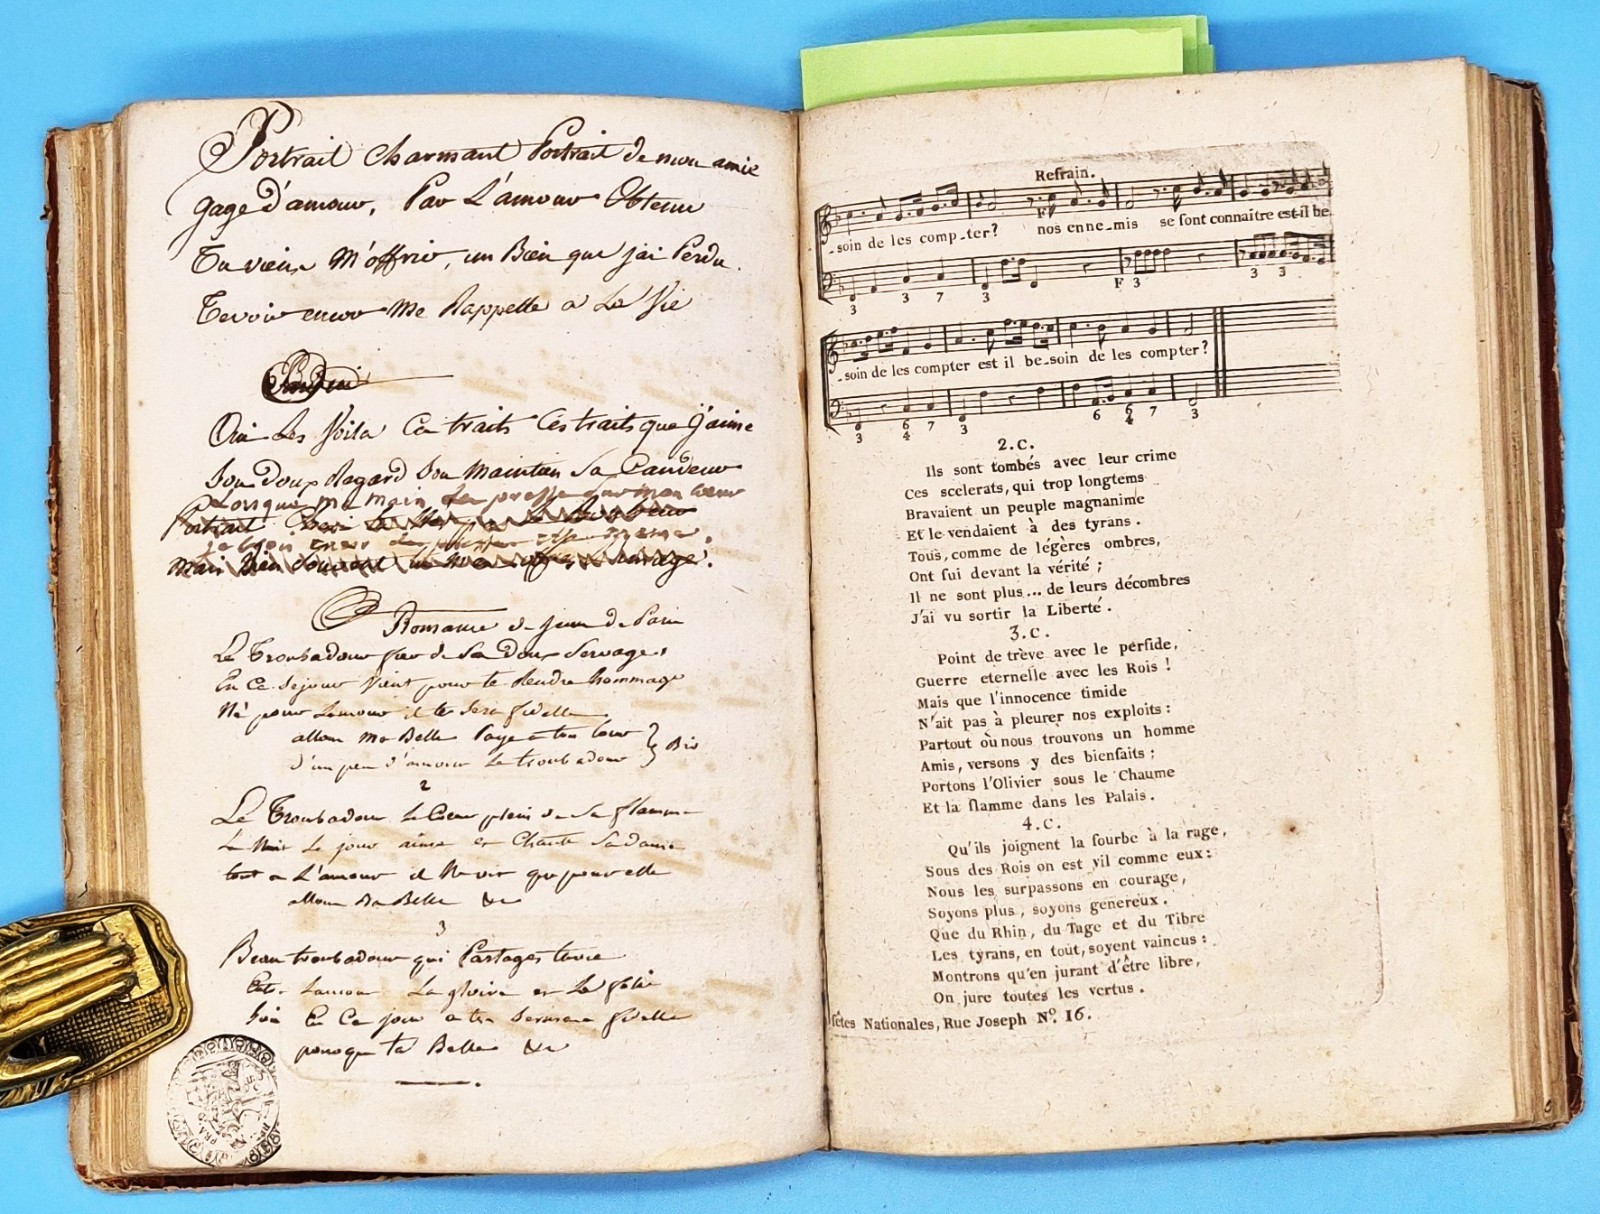 Portrait Charmant Portrait de mon amie
gage d'amour, Par L'amour Obtenu
Tu viens M'offrir, un Bien que j'ai Perdu.
Te voir encor Me Rappelle a La Vie
Oui Les Voila Ces traits Ces traits que j'aime
Son Doux Regard Son Maintien Sa Candeur
Lorsque ma main Le presse sur mon Coeur
Portrait Cheri
Mais bien souvent image.
Romance de jean de Paris
Le Troubadour fier de Sa Doux Servage,
En Ce Sejour Vient pour te Rendre hommage
Né pour Lamour il te Sera fidelle
allons Ma Belle Paye a ton tour } Bis
d'un peu d'amour Le troubadour
2
Le Troubadour Le Coeur plein de Sa flamme
La Nuit Le jour aime et Chante Sa dame
tout a L'amour il Ne vit que pour elle
allons Ma Belle &c
3
Beau troubadour qui Partages
Lamour La gloire et Le
Sois En Ce jour a ton Serment fidelle
pour que ta Belle &c
Refrain.
-soin de les comp-ter? nos enne-mis se font connaitre est-il be
3 3 7 3 F 3 3 3
-soin de les compter est il be-soin de les compter?
3 6 4 7 3 6 6 4 7 3
2.C.
Ils sont tombés avec leur crime
Ces scelerats, qui trop longtems
Bravaient un peuple magnanime
Et le vendaient à des tyrans.
Tous, comme de légères ombres,
Ont fui devant la vérité ;
Il ne sont plus... de leurs décombres
J'ai vu sortir la Liberté.
3.C.
Point de trève avec le perfide,
Guerre eternelle avec les Rois !
Mais que l'innocence timide
N'ait pas à pleurer nos exploits :
Partout où nous trouvons un homme
Amis, versons y des bienfaits ;
Portons l'Olivier sous le Chaume
Et la flamme dans les Palais.
4.C.
Qu'ils joignent la fourbe à la rage,
Sous des Rois on est vil comme eux :
Nous les surpassons en courage,
Soyons plus, soyons genereux.
Que du Rhin, du Tage et du Tibre
Les tyrans, en tout, soyent vaincus :
Montrons qu'en jurant d'être libre,
On jure toutes les vertus.
fêtes Nationales, Rue Joseph N.º 16.